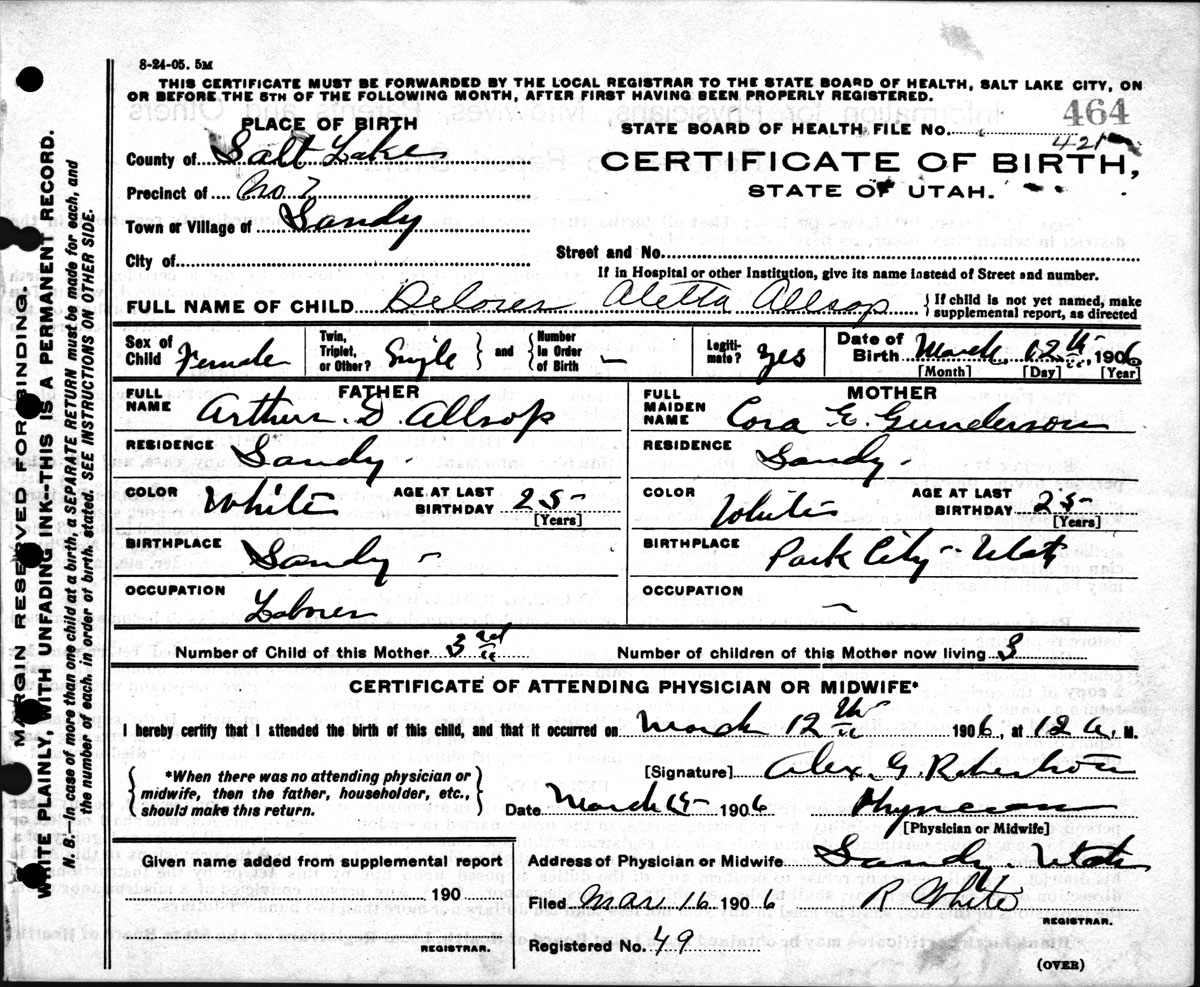 8-24-05. 5M
THIS CERTIFICATE MUST BE FORWARDED BY THE LOCAL REGISTRAR TO THE STATE BOARD OF HEALTH, SALT LAKE CITY, ON
OR BEFORE THE 5TH OF THE FOLLOWING MONTH, AFTER FIRST HAVING BEEN PROPERLY REGISTERED.
464
PLACE OF BIRTH
STATE BOARD OF HEALTH FILE NO. 421
County of Salt Lake
CERTIFICATE OF BIRTH,
STATE OF UTAH.
Precinct of No. 7
Town or Village of Sandy
City of
Street and No.
If in Hospital or other Institution, give its name instead of Street and number.
FULL NAME OF CHILD Delores Aletta Allsop { If child is not yet named, make supplemental report, as directed
Sex of Child Female
Twin, Triplet, or Other? Single } and { Number in Order of Birth —
Legitimate? Yes
Date of Birth March 12th 1906
[Month] [Day] [Year]
FATHER
FULL NAME Arthur D. Allsop
RESIDENCE Sandy -
COLOR White
AGE AT LAST BIRTHDAY 25
[Years]
BIRTHPLACE Sandy -
OCCUPATION Laborer
MOTHER
FULL MAIDEN NAME Cora E. Gunderson
RESIDENCE Sandy -
COLOR White
AGE AT LAST BIRTHDAY 25
[Years]
BIRTHPLACE Park City - Utah
OCCUPATION ~
Number of Child of this Mother 3rd
Number of children of this Mother now living 3
CERTIFICATE OF ATTENDING PHYSICIAN OR MIDWIFE*
I hereby certify that I attended the birth of this child, and that it occurred on March 12th 1906, at 12 A. M.
{ *When there was no attending physician or midwife, then the father, householder, etc., should make this return. }
[Signature] Alex. G. Robertson
Date March 15 1906 Physician
[Physician or Midwife]
Given name added from supplemental report
190
REGISTRAR.
Address of Physician or Midwife Sandy Utah
Filed Mar 16 1906 R White
REGISTRAR.
Registered No. 49
(OVER)
MARGIN RESERVED FOR BINDING.
WRITE PLAINLY, WITH UNFADING INK--THIS IS A PERMANENT RECORD.
N. B.--In case of more than one child at a birth, a SEPARATE RETURN must be made for each, and
the number of each, in order of birth, stated. SEE INSTRUCTIONS ON OTHER SIDE.